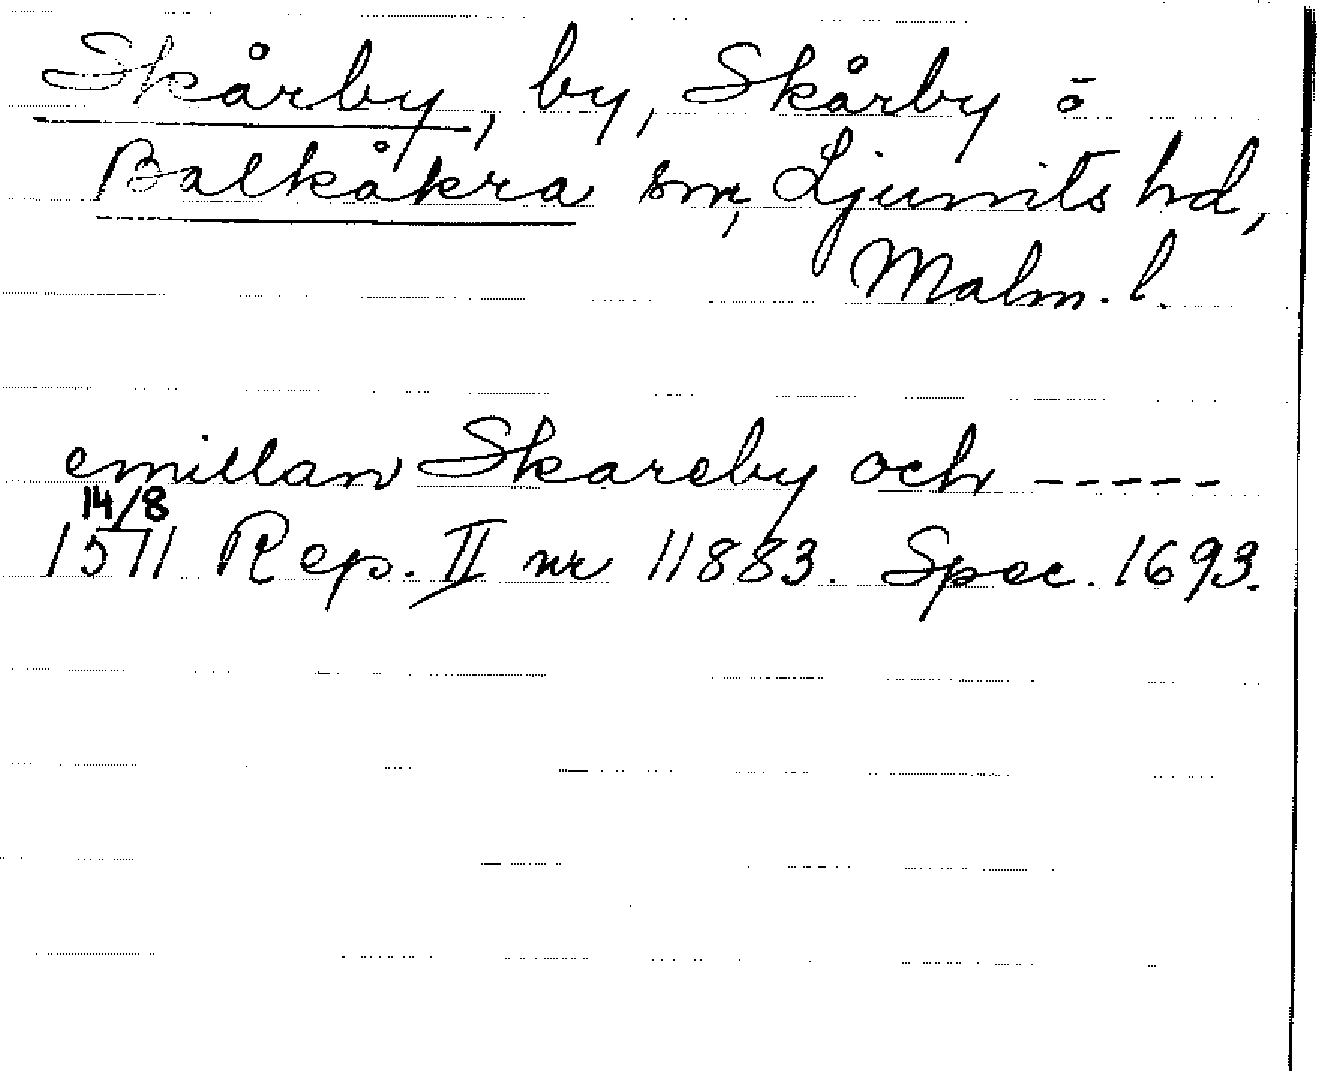 Skårby, by, Skårby o
Balkåkra sm, Ljunits hd,
Malm. l.
emillan Skareby och -----
14/8
1511 Rep. II nr 11883. Spec. 1693.